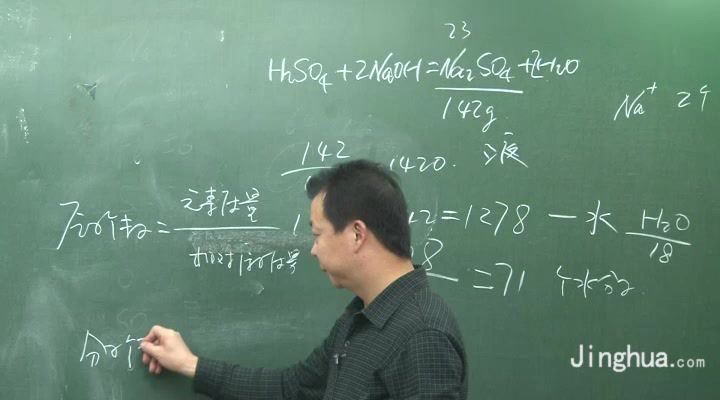 23
H₂SO₄ + 2NaOH = Na₂SO₄ + 2H₂O
142g
Na⁺ 2个
142
1420. 液
原子个数 = 元素质量
相对原子质量
= 1278 — 水 H₂O
18
= 71 个水分子
分子个
Jinghua.com